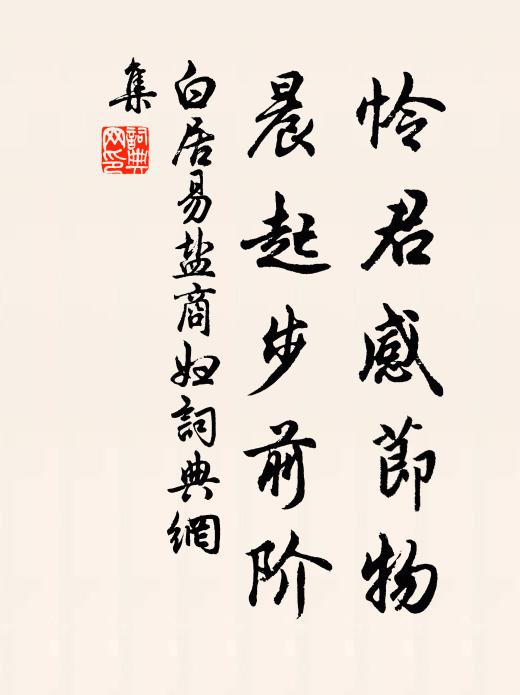 怜君感節物
晨起步前阶
白居易盐商妇詞典網
集
詞典網印